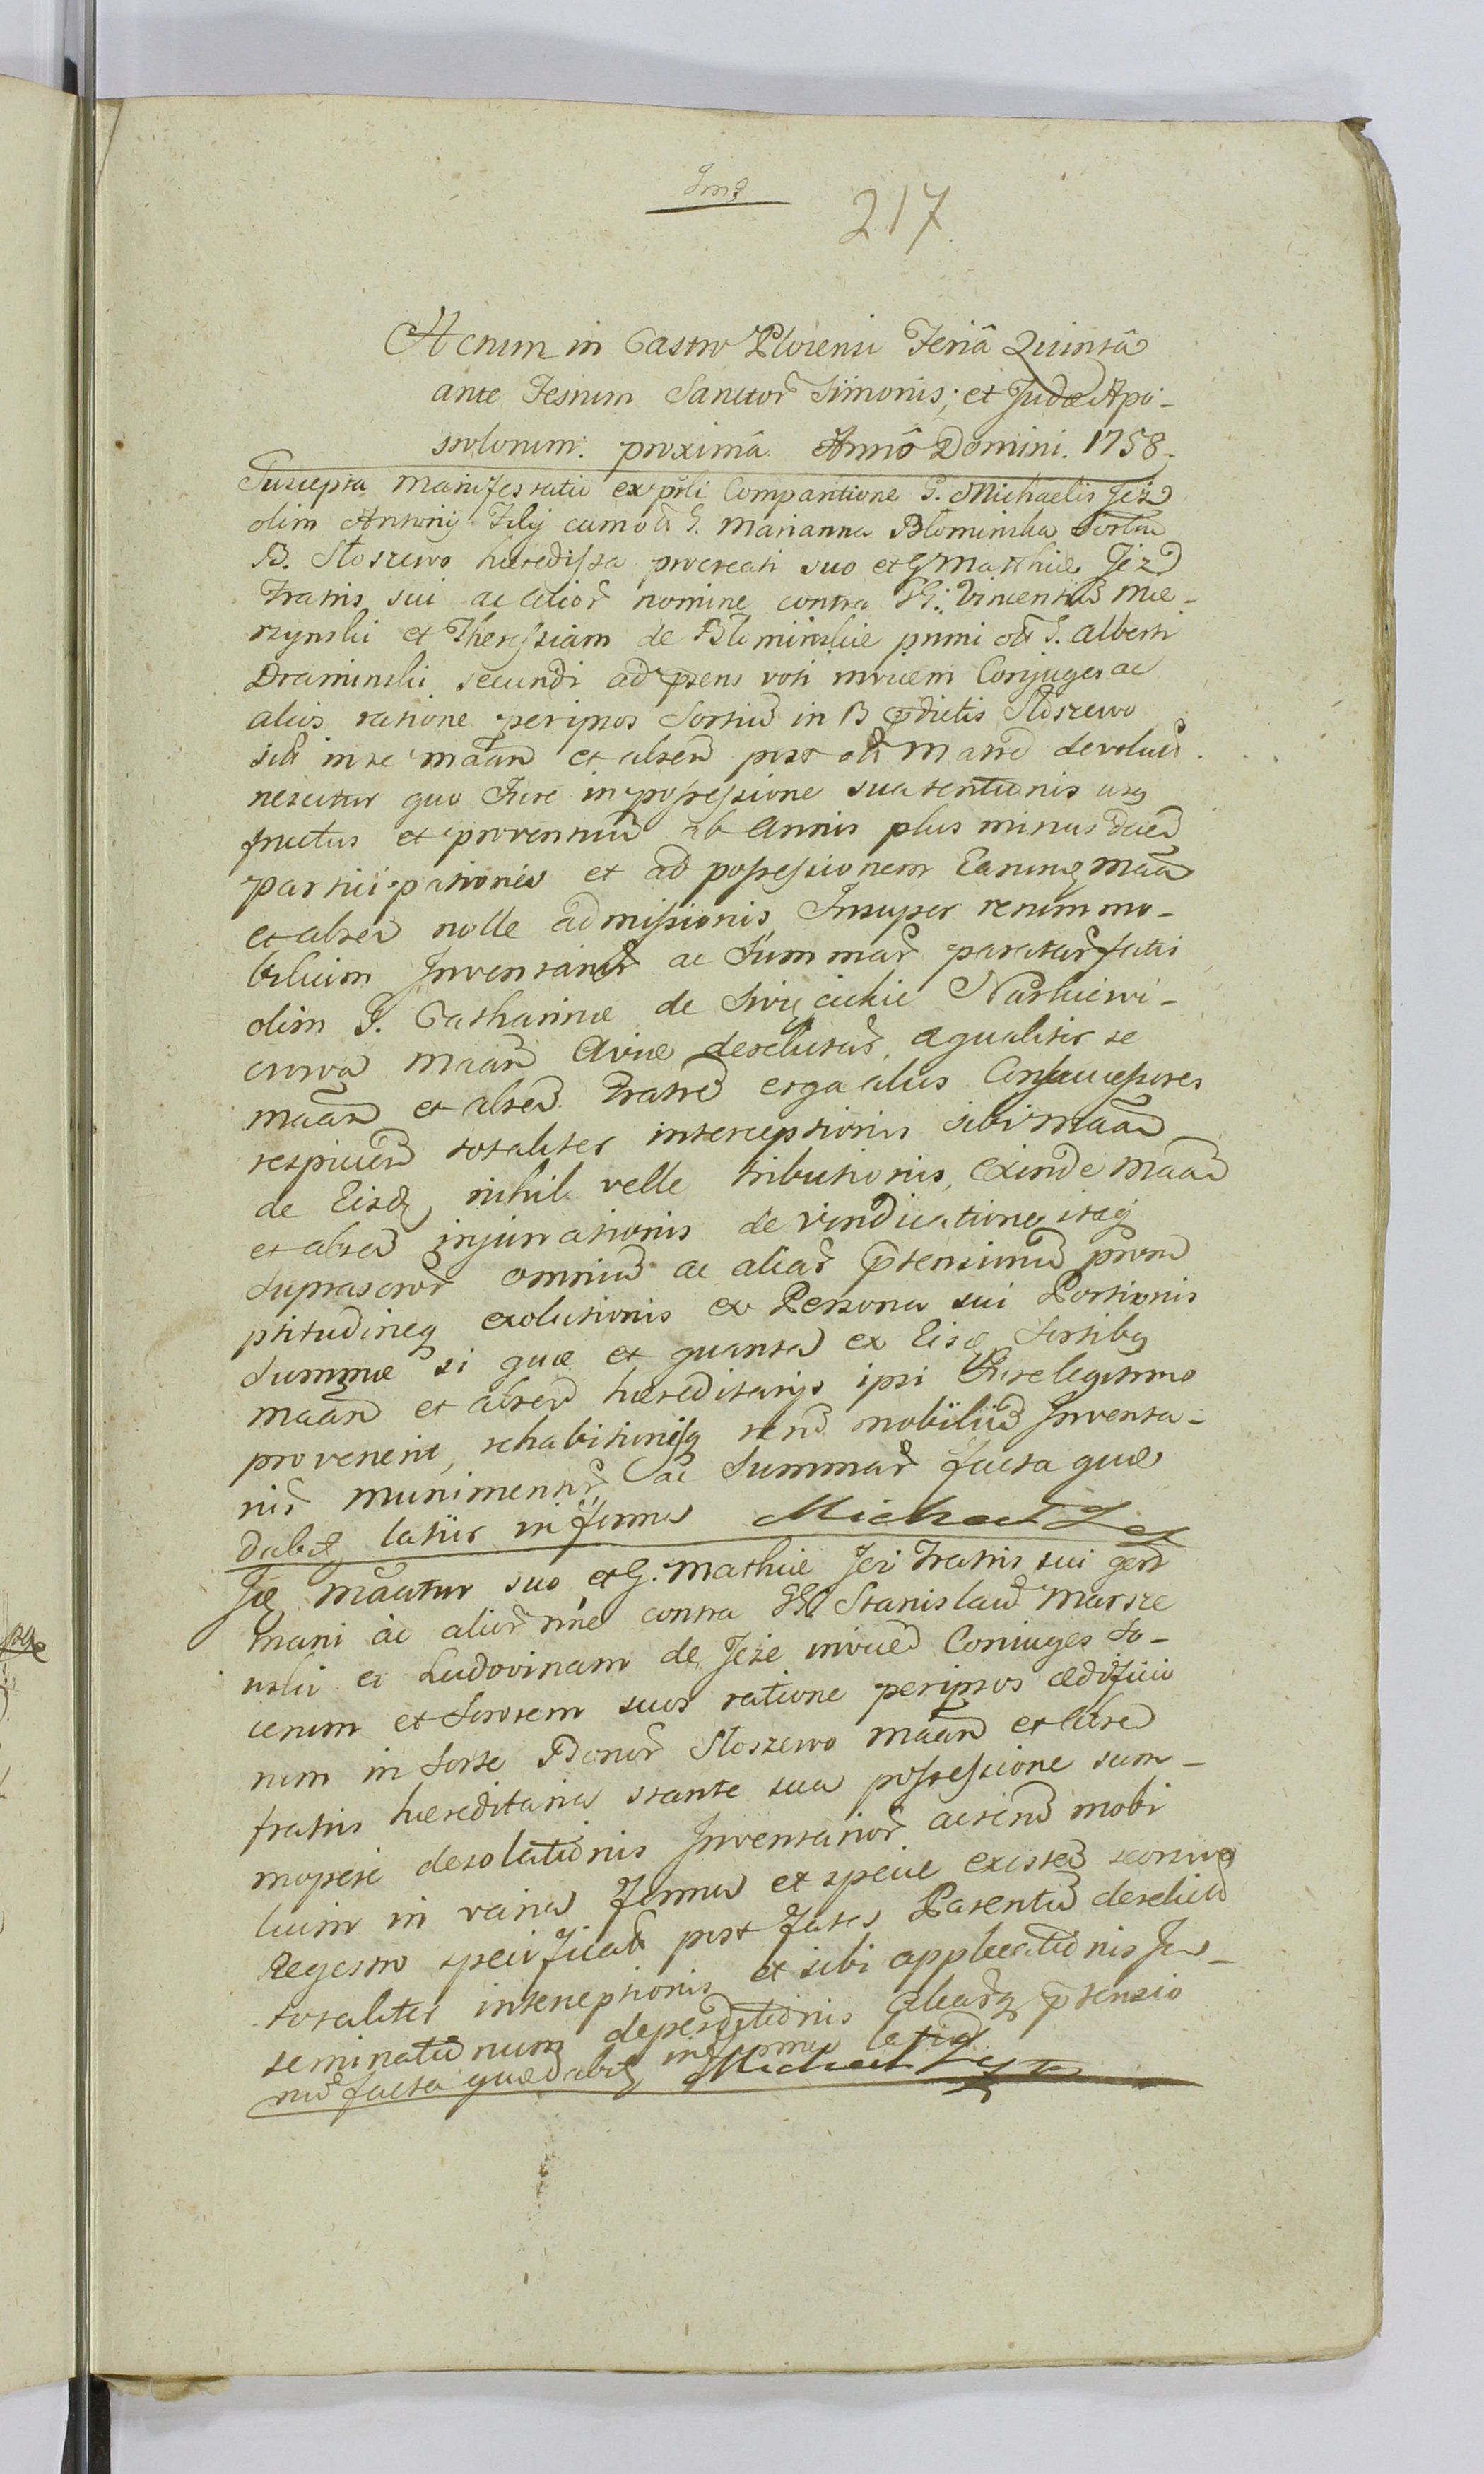 217
Actum in Castro Plocensi Feriâ Quintâ
ante Festum Sanctor Simonis; et Judæ Apo-
stolorum. proximâ Annô Domini. 1758.
Suscepta Manifestatio ex psli Comparitione G. Michaelis Jeż
olim Antonij Filij cum olt G. Marianna Blominska Sortiu
B. Słoszewo hæredissa procreati suo et G Matthiæ Jez
Fratris sui ac alior nomine contra GG. Vincentiu Mie-
rzynski et Theressiam de Blominskie primi olt G. Alberti
Draminski secundi ad psens voti invicem Conjuges ac
alios ratione per ipsos Sortiu in B pdictis Słoszewo
sibi inse maan et alteru post olt Matre devolut.
nescitur quo Jure in possessione sua tentionis usq
fructus et proventuu ab Annis plus minus dece
participationis et ad possessionem Earumq maan
et alteru nolle admissionis, Insuper rerum mo-
bilium Inventarior ac Summar paratar fatis
olim G. Catharinæ de Swięcickie Narkiewi-
czowa Maan Aviæ derelictar, æqualiter se
maan et alteru Fratre erga alios Consuccessores
respicien totaliter interceptionis sibi maan
de Eisdq nihil velle tributionis, Exinde Maan
et alteru injuriationis de vindicatione itaq
Suprascror omniu ac aliar ptensionu prom
ptitudineq exolutionis ex Persona sui Portionis
Summæ si quæ et quanta ex Eisq Sortibq
maan et alteru hæreditarijs ipsi Jure legitimo
provenerit, rehabitionisq reru mobiliu Inventa-
rior munimentor ac Summar facta quæ
dabq latius in forma Michael Jeż
Jdq Maatur suo et G. Mathiæ Jeż Fratris sui ger
mani ac alior nne contra GG Stanislau Marsze
wski et Ludovinam de Jeże invice Coniuges So-
cerum et Sororem suos ratione per ipsos ædificio
rum in Sorte Bonor Słoszewo maan et alteru
fratris hæreditaria stante sua possessione sum-
mopere desolationis Inventarior ac reru mobi
lium in varia forma et specie existen seorsivo
Regestro specificat post fata Parentu derelict
totaliter interceptionis et sibi applicationis In-
seminationum deperditionis aliarq ptensio
nu facta quæ dabq in forma latiori Michael Jeż